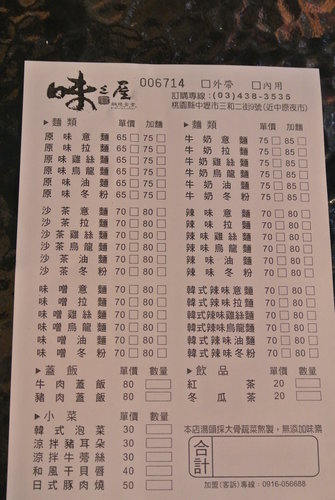 味之屋 006714 □外帶 □內用
訂購專線：(03)438-3535
桃園縣中壢市三和二街9號(近中原夜市)
▶麵類 單價 加麵
原味意麵 65□75□
原味拉麵 65□75□
原味雞絲麵 65□75□
原味烏龍麵 65□75□
原味油麵 65□75□
原味冬粉 65□75□
沙茶意麵 70□80□
沙茶拉麵 70□80□
沙茶雞絲麵 70□80□
沙茶烏龍麵 70□80□
沙茶油麵 70□80□
沙茶冬粉 70□80□
味噌意麵 70□80□
味噌拉麵 70□80□
味噌雞絲麵 70□80□
味噌烏龍麵 70□80□
味噌油麵 70□80□
味噌冬粉 70□80□
▶蓋飯 單價 數量
牛肉蓋飯 80
豬肉蓋飯 80
▶小菜 單價 數量
韓式泡菜 30
涼拌豬耳朵 30
涼拌牛蒡絲 30
和風干貝唇 40
日式豚肉燒 50
▶麵類 單價 加麵
牛奶意麵 75□85□
牛奶拉麵 75□85□
牛奶雞絲麵 75□85□
牛奶烏龍麵 75□85□
牛奶油麵 75□85□
牛奶冬粉 75□85□
辣味意麵 70□80□
辣味拉麵 70□80□
辣味雞絲麵 70□80□
辣味烏龍麵 70□80□
辣味油麵 70□80□
辣味冬粉 70□80□
韓式辣味意麵 70□80□
韓式辣味拉麵 70□80□
韓式辣味雞絲麵 70□80□
韓式辣味烏龍麵 70□80□
韓式辣味油麵 70□80□
韓式辣味冬粉 70□80□
▶飲品 單價 數量
紅茶 20
冬瓜茶 20
本店湯頭採大骨蔬菜熬製，無添加味素
合計
加盟(客訴)專線：0916-056688